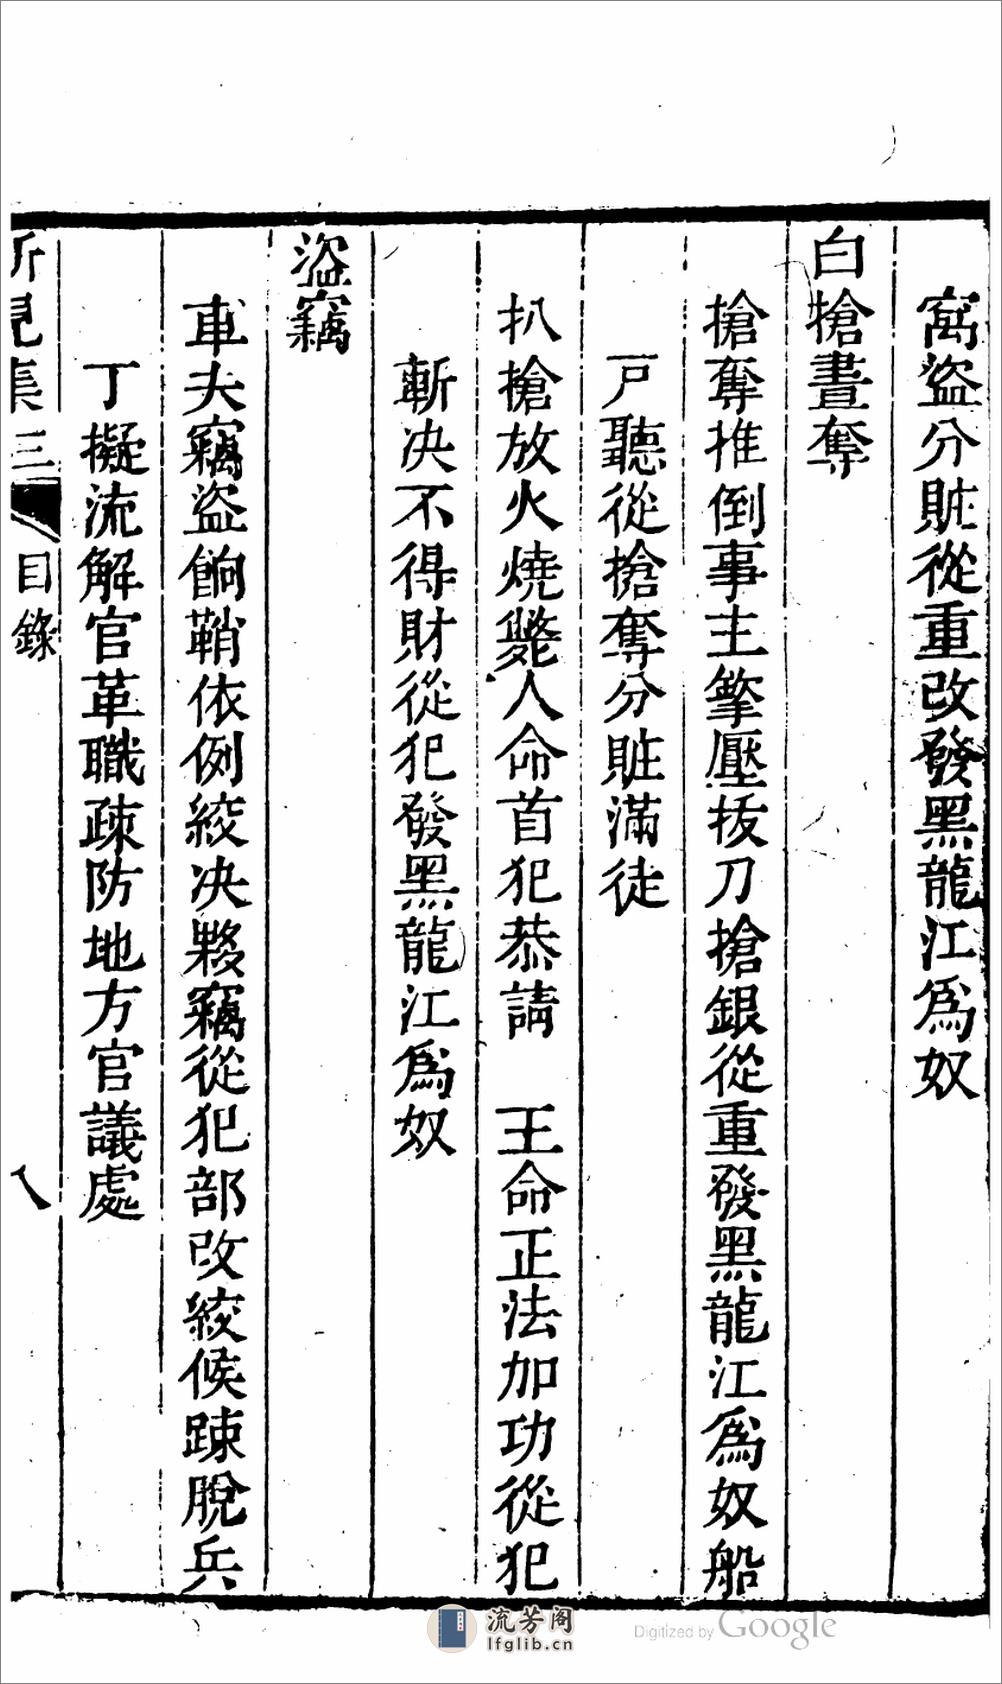 窩盜分賍從重改發黑龍江爲奴
白搶晝奪
搶奪推倒事主擎壓拔刀搶銀從重發黑龍江爲奴船
戸聽從搶奪分賍滿徒
扒搶放火燒斃人命首犯恭請 王命正法加功從犯
斬决不得財從犯發黑龍江爲奴
盜竊
車夫竊盜餉鞘依例絞决夥竊從犯部改絞候疎脫兵
丁擬流解官革職疎防地方官議處
所見集三 目錄 八
流芳阁
lfglib.cn
Digitized by Google